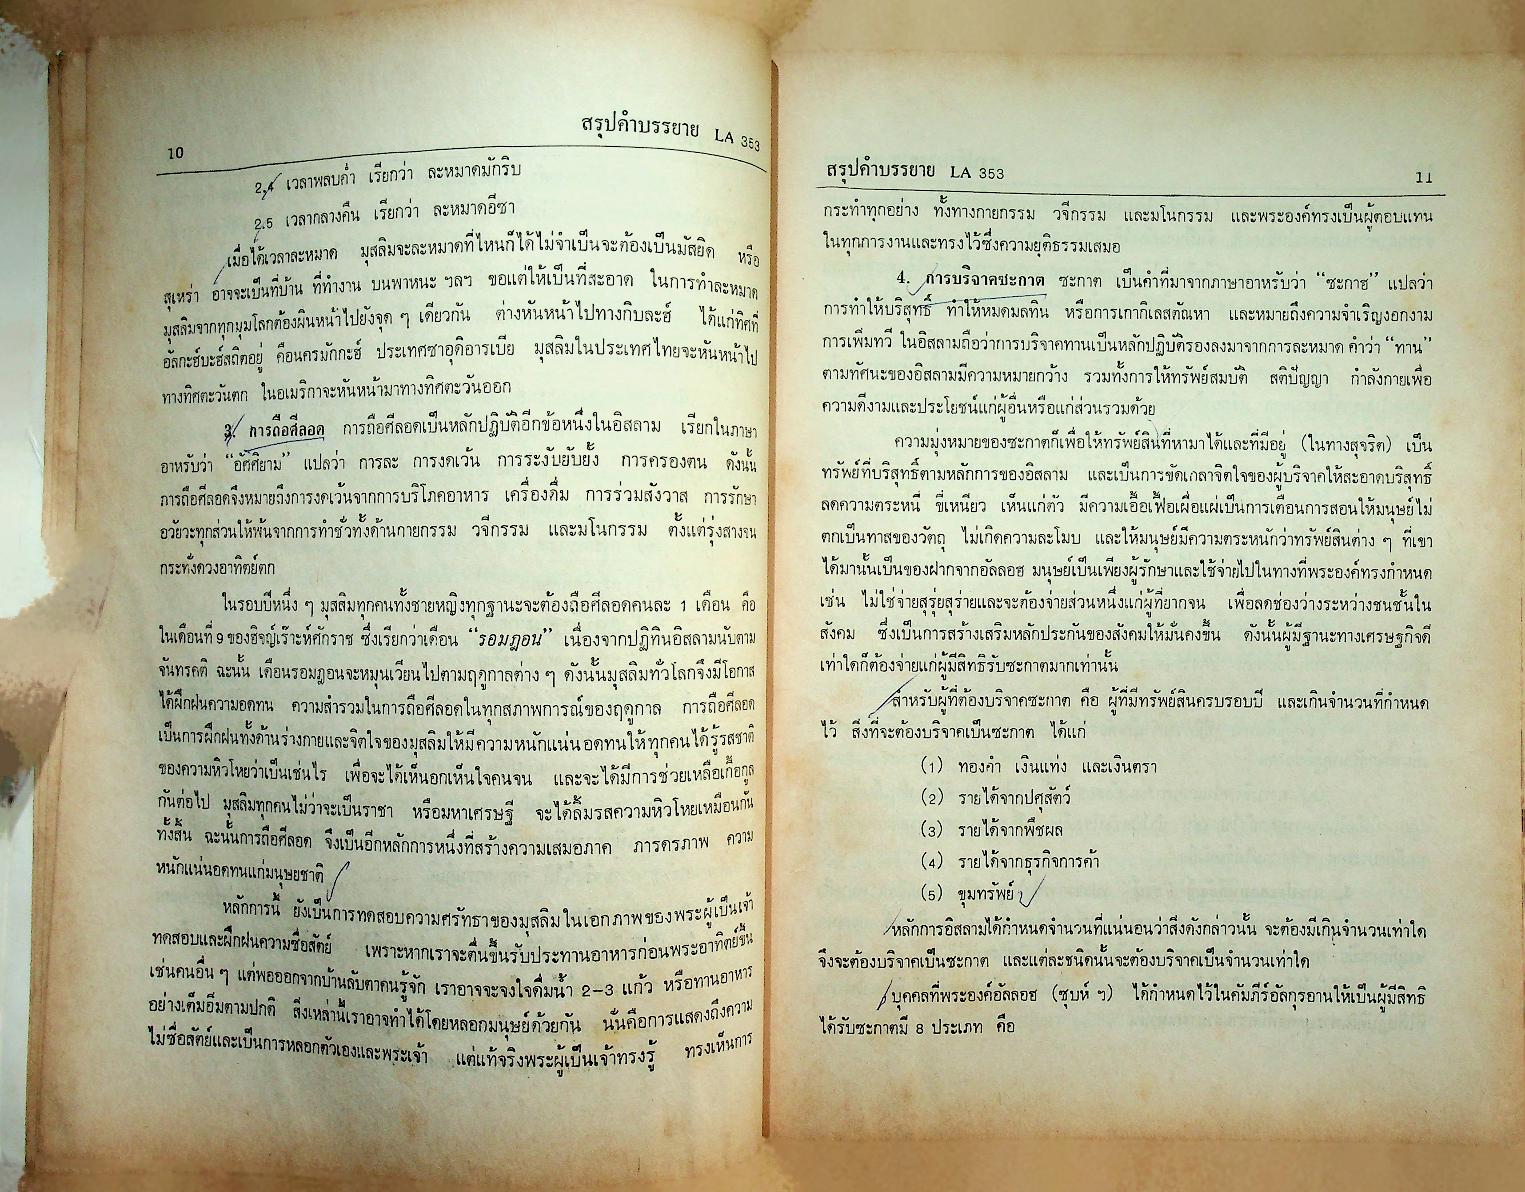 10
สรุปคำบรรยาย LA 353
2.4 เวลาพลบค่ำ เรียกว่า ละหมาดมักริบ
2.5 เวลากลางคืน เรียกว่า ละหมาดอีซา
เมื่อได้เวลาละหมาด มุสลิมจะละหมาดที่ไหนก็ได้ไม่จำเป็นจะต้องเป็นมัสยิด หรือ
สุเหร่า อาจจะเป็นที่บ้าน ที่ทำงาน บนพาหนะ ฯลฯ ขอแต่ให้เป็นที่สะอาด ในการทำละหมาด
มุสลิมจากทุกมุมโลกต้องผินหน้าไปยังจุด ๆ เดียวกัน ต่างหันหน้าไปทางกิบละฮ์ ได้แก่ทิศที่
อัลกะฮ์บะฮ์สถิตอยู่ คือนครมักกะฮ์ ประเทศซาอุดิอารเบีย มุสลิมในประเทศไทยจะหันหน้าไป
ทางทิศตะวันตก ในอเมริกาจะหันหน้ามาทางทิศตะวันออก
3. การถือศีลอด การถือศีลอดเป็นหลักปฏิบัติอีกข้อหนึ่งในอิสลาม เรียกในภาษา
อาหรับว่า “อัศศิยาม” แปลว่า การละ การงดเว้น การระงับยับยั้ง การครองตน ดังนั้น
การถือศีลอดจึงหมายถึงการงดเว้นจากการบริโภคอาหาร เครื่องดื่ม การร่วมสังวาส การรักษา
อวัยวะทุกส่วนให้พ้นจากการทำชั่วทั้งด้านกายกรรม วจีกรรม และมโนกรรม ตั้งแต่รุ่งสางจน
กระทั่งดวงอาทิตย์ตก
ในรอบปีหนึ่ง ๆ มุสลิมทุกคนทั้งชายหญิงทุกฐานะจะต้องถือศีลอดคนละ 1 เดือน คือ
ในเดือนที่ 9 ของฮิจญ์เราะห์ศักราช ซึ่งเรียกว่าเดือน “รอมฎอน” เนื่องจากปฏิทินอิสลามนับตาม
จันทรคติ ฉะนั้น เดือนรอมฎอนจะหมุนเวียนไปตามฤดูกาลต่าง ๆ ดังนั้นมุสลิมทั่วโลกจึงมีโอกาส
ได้ฝึกฝนความอดทน ความสำรวมในการถือศีลอดในทุกสภาพการณ์ของฤดูกาล การถือศีลอด
เป็นการฝึกฝนทั้งด้านร่างกายและจิตใจของมุสลิมให้มีความหนักแน่นอดทนให้ทุกคนได้รู้รสชาติ
ของความหิวโหยว่าเป็นเช่นไร เพื่อจะได้เห็นอกเห็นใจคนจน และจะได้มีการช่วยเหลือเกื้อกูล
กันต่อไป มุสลิมทุกคนไม่ว่าจะเป็นราชา หรือมหาเศรษฐี จะได้ลิ้มรสความหิวโหยเหมือนกัน
ทั้งสิ้น ฉะนั้นการถือศีลอด จึงเป็นอีกหลักการหนึ่งที่สร้างความเสมอภาค ภารดรภาพ ความ
หนักแน่นอดทนแก่มนุษยชาติ
หลักการนี้ ยังเป็นการทดสอบความศรัทธาของมุสลิมในเอกภาพของพระผู้เป็นเจ้า
ทดสอบและฝึกฝนความซื่อสัตย์ เพราะหากเราจะตื่นขึ้นรับประทานอาหารก่อนพระอาทิตย์ขึ้น
เช่นคนอื่น ๆ แต่พอออกจากบ้านลับตาคนรู้จัก เราอาจจะจงใจดื่มน้ำ 2–3 แก้ว หรือทานอาหาร
อย่างเต็มอิ่มตามปกติ สิ่งเหล่านี้เราอาจทำได้โดยหลอกมนุษย์ด้วยกัน นั่นคือการแสดงถึงความ
ไม่ซื่อสัตย์และเป็นการหลอกตัวเองและพระเจ้า แต่แท้จริงพระผู้เป็นเจ้าทรงรู้ ทรงเห็นการ
สรุปคำบรรยาย LA 353
11
กระทำทุกอย่าง ทั้งทางกายกรรม วจีกรรม และมโนกรรม และพระองค์ทรงเป็นผู้ตอบแทน
ในทุกการงานและทรงไว้ซึ่งความยุติธรรมเสมอ
4. การบริจาคซะกาต ซะกาต เป็นคำที่มาจากภาษาอาหรับว่า “ซะกาฮ” แปลว่า
การทำให้บริสุทธิ์ ทำให้หมดมลทิน หรือการเกากิเลสตัณหา และหมายถึงความจำเริญงอกงาม
การเพิ่มทวี ในอิสลามถือว่าการบริจาคทานเป็นหลักปฏิบัติรองลงมาจากการละหมาด คำว่า “ทาน”
ตามทัศนะของอิสลามมีความหมายกว้าง รวมทั้งการให้ทรัพย์สมบัติ สติปัญญา กำลังกายเพื่อ
ความดีงามและประโยชน์แก่ผู้อื่นหรือแก่ส่วนรวมด้วย
ความมุ่งหมายของซะกาตก็เพื่อให้ทรัพย์สินที่หามาได้และที่มีอยู่ (ในทางสุจริต) เป็น
ทรัพย์ที่บริสุทธิ์ตามหลักการของอิสลาม และเป็นการขัดเกลาจิตใจของผู้บริจาคให้สะอาดบริสุทธิ์
ลดความตระหนี่ ขี้เหนียว เห็นแก่ตัว มีความเอื้อเฟื้อเผื่อแผ่เป็นการเตือนการสอนให้มนุษย์ไม่
ตกเป็นทาสของวัตถุ ไม่เกิดความละโมบ และให้มนุษย์มีความตระหนักว่าทรัพย์สินต่าง ๆ ที่เขา
ได้มานั้นเป็นของฝากจากอัลลอฮ มนุษย์เป็นเพียงผู้รักษาและใช้จ่ายไปในทางที่พระองค์ทรงกำหนด
เช่น ไม่ใช่จ่ายสุรุ่ยสุร่ายและจะต้องจ่ายส่วนหนึ่งแก่ผู้ที่ยากจน เพื่อลดช่องว่างระหว่างชนชั้นใน
สังคม ซึ่งเป็นการสร้างเสริมหลักประกันของสังคมให้มั่นคงขึ้น ดังนั้นผู้มีฐานะทางเศรษฐกิจดี
เท่าใดก็ต้องจ่ายแก่ผู้มีสิทธิรับซะกาตมากเท่านั้น
สำหรับผู้ที่ต้องบริจาคซะกาต คือ ผู้ที่มีทรัพย์สินครบรอบปี และเกินจำนวนที่กำหนด
ไว้ สิ่งที่จะต้องบริจาคเป็นซะกาต ได้แก่
(1) ทองคำ เงินแท่ง และเงินตรา
(2) รายได้จากปศุสัตว์
(3) รายได้จากพืชผล
(4) รายได้จากธุรกิจการค้า
(5) ขุมทรัพย์
หลักการอิสลามได้กำหนดจำนวนที่แน่นอนว่าสิ่งดังกล่าวนั้น จะต้องมีเกินจำนวนเท่าใด
จึงจะต้องบริจาคเป็นซะกาต และแต่ละชนิดนั้นจะต้องบริจาคเป็นจำนวนเท่าใด
บุคคลที่พระองค์อัลลอฮ (ซุบห์ ฯ) ได้กำหนดไว้ในคัมภีร์อัลกุรอานให้เป็นผู้มีสิทธิ
ได้รับซะกาตมี 8 ประเภท คือ